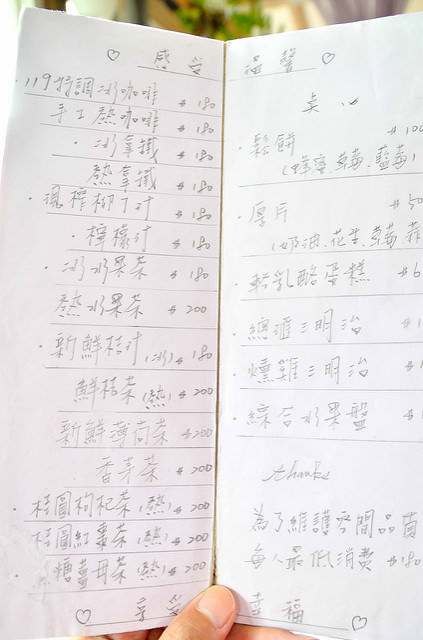 ♡ 感受
119特調冰咖啡 $180
手工熱咖啡 $180
·冰拿鐵 $180
熱拿鐵 $180
現榨柳丁汁 $180
·檸檬汁 $180
·冰水果茶 $180
熱水果茶 $200
·新鮮桔汁(冰) $180
鮮桔茶(熱) $200
新鮮薄荷茶 $200
香茅茶 $200
·桂圓枸杞茶(熱) $200
·桂圓紅棗茶(熱) $200
·糖薑母茶(熱) $200
♡ 享受
溫馨 ♡
點心
·鬆餅 $100
(蜂蜜.草莓.藍莓)
·厚片 $50
(奶油.花生.草莓.蒜
·輕乳酪蛋糕 $6
·總匯三明治 $1
·燻雞三明治 $1
·綜合水果盤 $1
thanks
為了維護空間品質
每人最低消費 $180
幸福 ♡